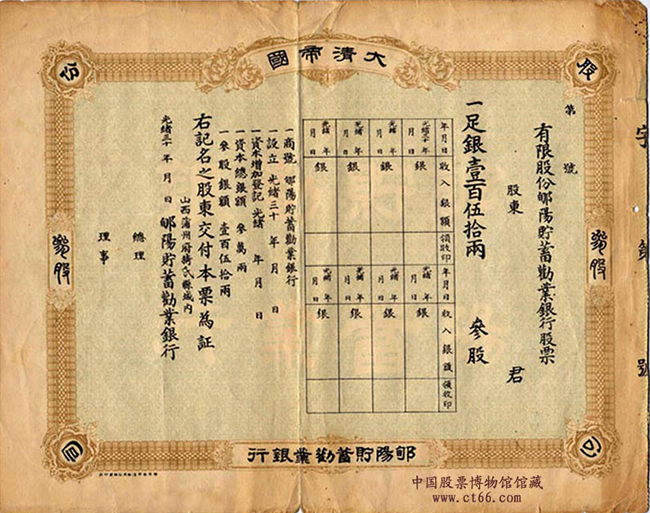 大清帝國
股
份
公
司
叄股
叄股
字第號
第 號
有限股份郇陽貯蓄勸業銀行股票
股東 君
一足銀壹百伍拾兩 叄股
年月日 收入銀額 領收印
光緒三十年 月 日 銀
光緒 年 月 日 銀
光緒 年 月 日 銀
光緒 年 月 日 銀
光緒 年 月 日 銀
年月日 收入銀額 領收印
光緒 年 月 日 銀
光緒 年 月 日 銀
光緒 年 月 日 銀
光緒 年 月 日 銀
光緒 年 月 日 銀
一商號 郇陽貯蓄勸業銀行
一設立 光緒三十 年 月 日
一資本增加登記 光緒 年 月 日
一資本總銀額 叄萬兩
一叄股銀額 壹百伍拾兩
右記名之股東交付本票為証
山西蒲州府猗氏縣城内
光緒三十 年 月 日 郇陽貯蓄勸業銀行
總理
理事
郇陽貯蓄勸業銀行
中国股票博物馆馆藏
www.ct66.com